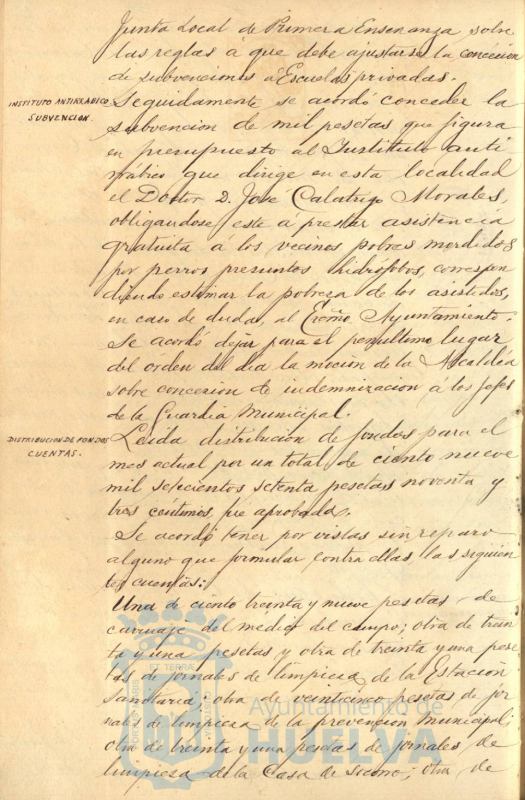 Junta Local de Primera Enseñanza sobre
las reglas á que debe ajustarse la concesion
de subvenciones á Escuelas privadas.
INSTITUTO ANTIRRABICO
SUBVENCION.
Seguidamente se acordó conceder la
subvencion de mil pesetas que figura
en presupuesto al Instituto anti
rrábico que dirige en esta localidad
el Doctor D. José Calatrigo Morales,
obligandose este á prestar asistencia
gratuita á los vecinos pobres mordidos
por perros presuntos hidrófobos, correspon
diendo estimar la pobreza de los asistidos,
en caso de duda, al Excmo Ayuntamiento.
Se acordó dejar para el penultimo lugar
del órden del dia la mocion de la Alcaldía
sobre concesion de indemnizacion á los Jefes
de la Guardia Municipal.
DISTRIBUCION DE FONDOS
CUENTAS.
Leida distribucion de fondos para el
mes actual por un total de ciento nueve
mil seiscientos setenta pesetas noventa y
tres céntimos, fue aprobada.
Se acordó tener por vistas sin reparo
alguno que formular contra ellas las siguien
tes cuentas:
Una de ciento treinta y nueve pesetas de
carruaje del medico del campo; otra de trein
ta y una pesetas y otra de treinta y una pese
tas de jornales de limpieza de la Estacion
Sanitaria; otra de veinticinco pesetas de jor
nales de limpieza de la prevencion municipal;
otra de treinta y una pesetas de jornales de
limpieza de la Casa de Socorro; otra de
ET TERRÆ
Ayuntamiento de
HUELVA